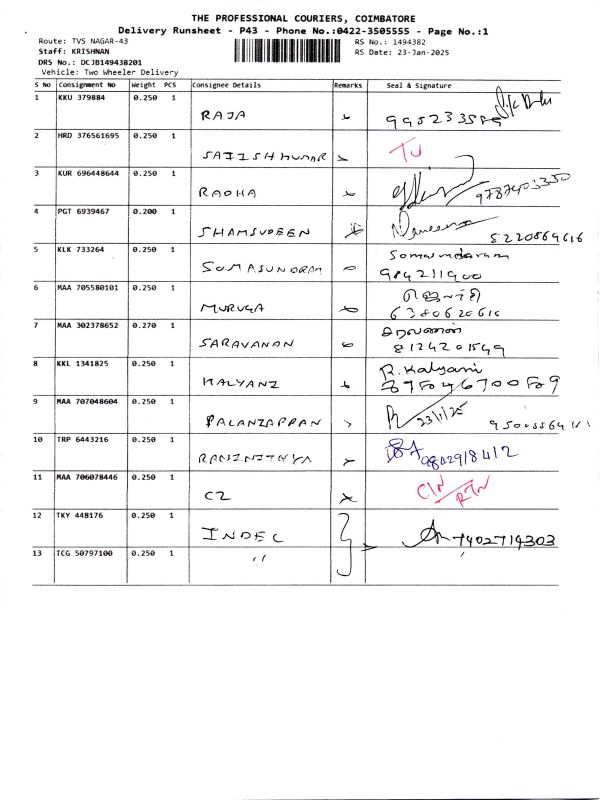 THE PROFESSIONAL COURIERS, COIMBATORE
Delivery Runsheet - P43 - Phone No.:0422-3505555 - Page No.:1
Route: TVS NAGAR-43 RS No.: 1494382
Staff: KRISHNAN RS Date: 23-Jan-2025
DRS No.: DCJB149438201
Vehicle: Two Wheeler Delivery
S No Consignment No Weight PCS Consignee Details Remarks Seal & Signature
1 KKU 379884 0.250 1 RAJA
2 HRD 376561695 0.250 1 SATISHKUMAR
3 KUR 696448644 0.250 1 RADHA
4 PGT 6939467 0.200 1 SHAMSUDEEN 8220869616
5 KLK 733264 0.250 1 SOMASUNDRAM Somasundaram
6 MAA 705580101 0.250 1 MURUGA 6380620610
7 MAA 302378652 0.270 1 SARAVANAN சரவணன் 8124201549
8 KKL 1341825 0.250 1 KALYANI R. Kalyani
9 MAA 707048604 0.250 1 PALANIAPPAN 23/1/25
10 TRP 6443216 0.250 1
11 MAA 706078446 0.250 1 CIN/RTN
12 TKY 448176 0.250 1 INDEC 7402714303
13 TCG 50797100 0.250 1 "